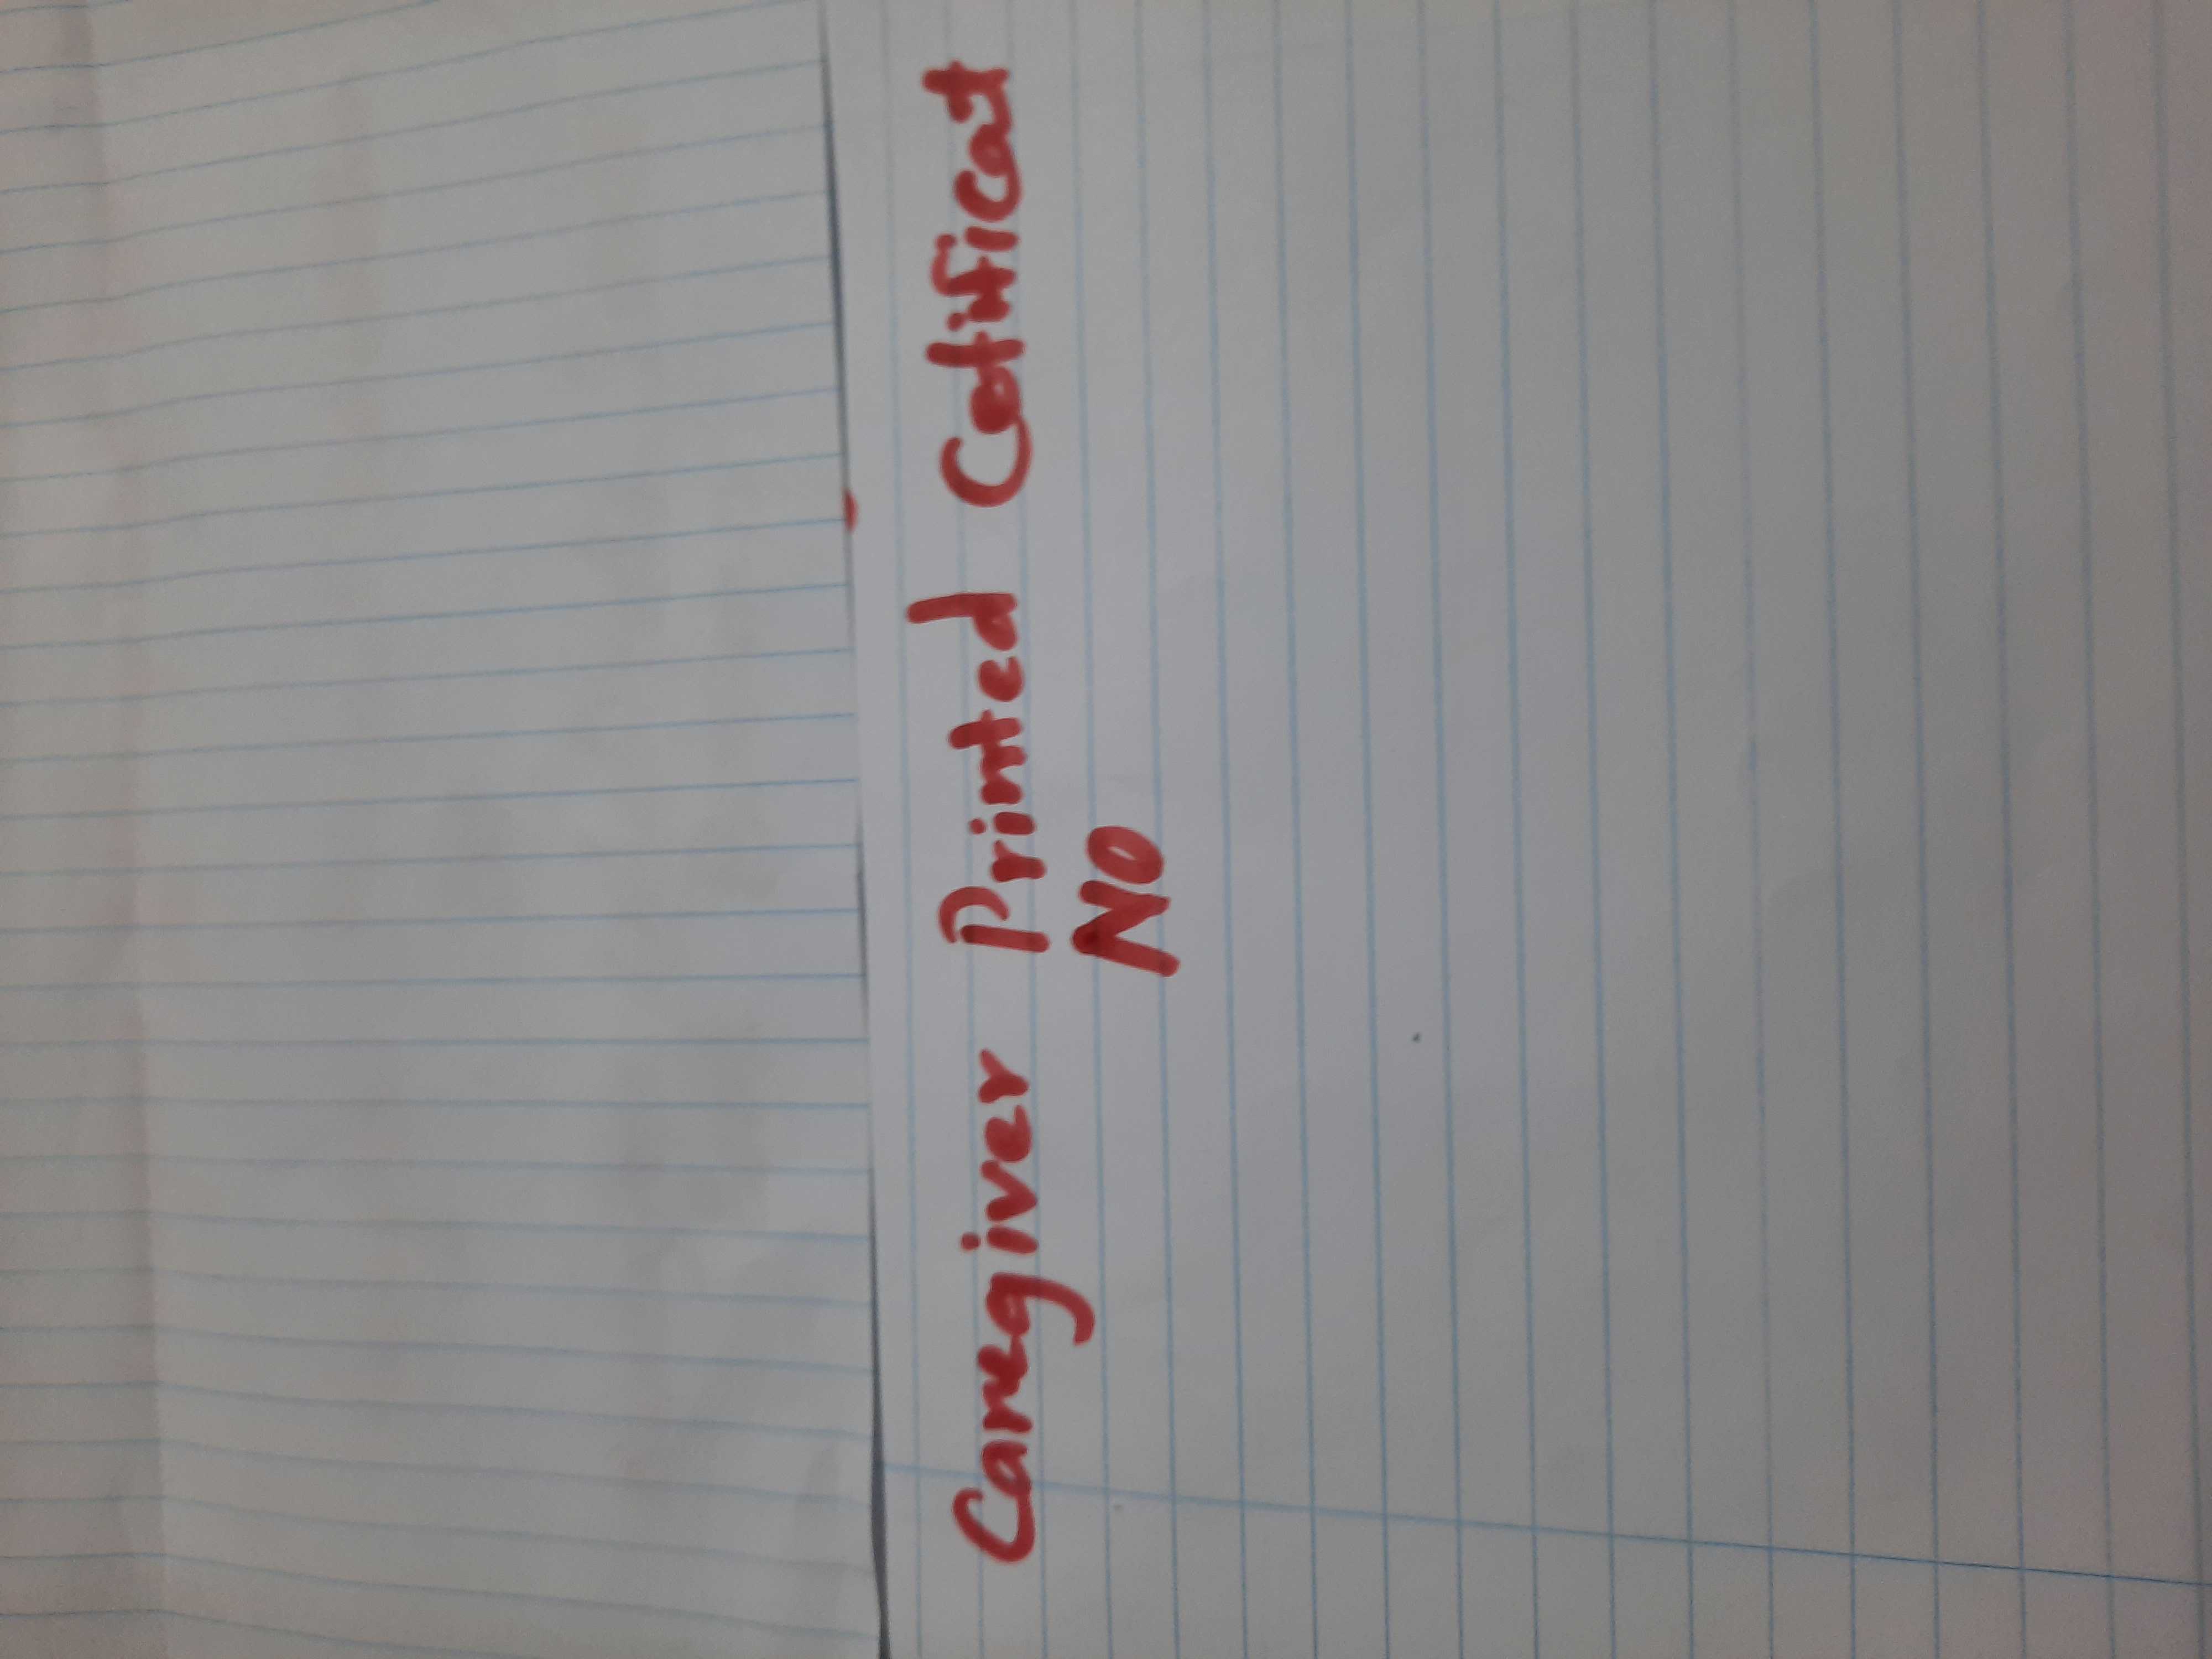 Caregiver Printed Cetificat
NO